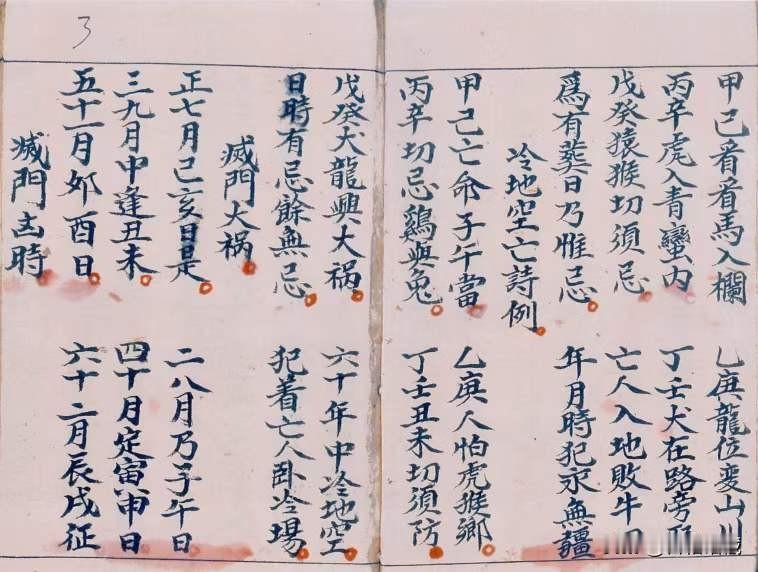 甲己看看馬入欄 乙庚龍位变山川
丙辛虎入青蠻内 丁壬犬在路旁
戊癸猿猴切須忌 亡人入地敗牛
爲有葬日乃惟忌 年月時犯永無疆
冷地空亡詩例
甲己亡命子午當 乙庚人怕虎猴鄉
丙辛切忌鷄與兔 丁壬丑未切須防
戊癸犬龍興大祸 六十年中冷地空
日時有忌餘無忌 犯着亡人卧冷場
滅門大祸
正七月己亥日是 二八月乃子午日
三九月中逢丑未 四十月定寅申日
五十一月夘酉日 六十二月辰戌征
滅門凶時
3